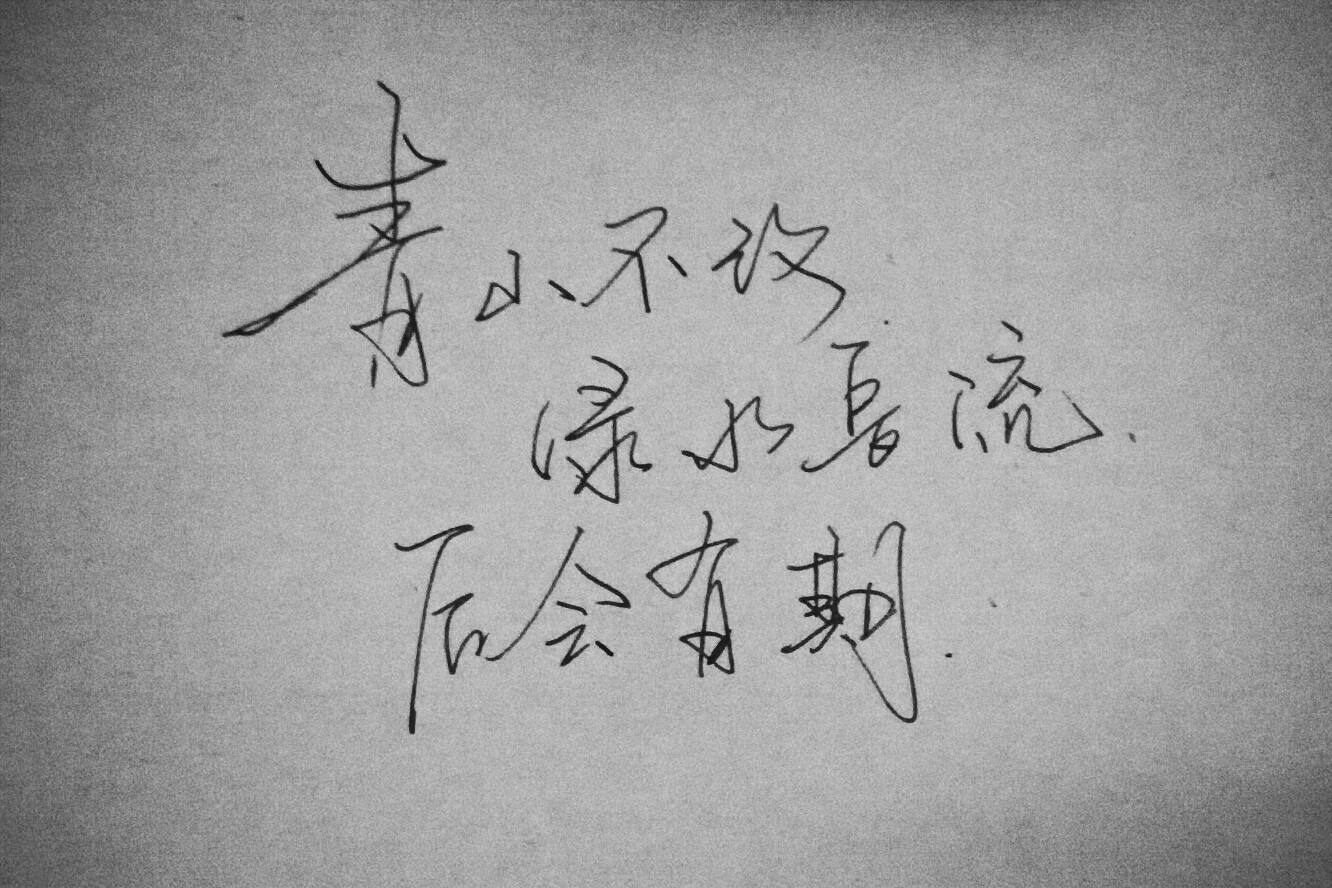 青山不改.
绿水長流.
后会有期.